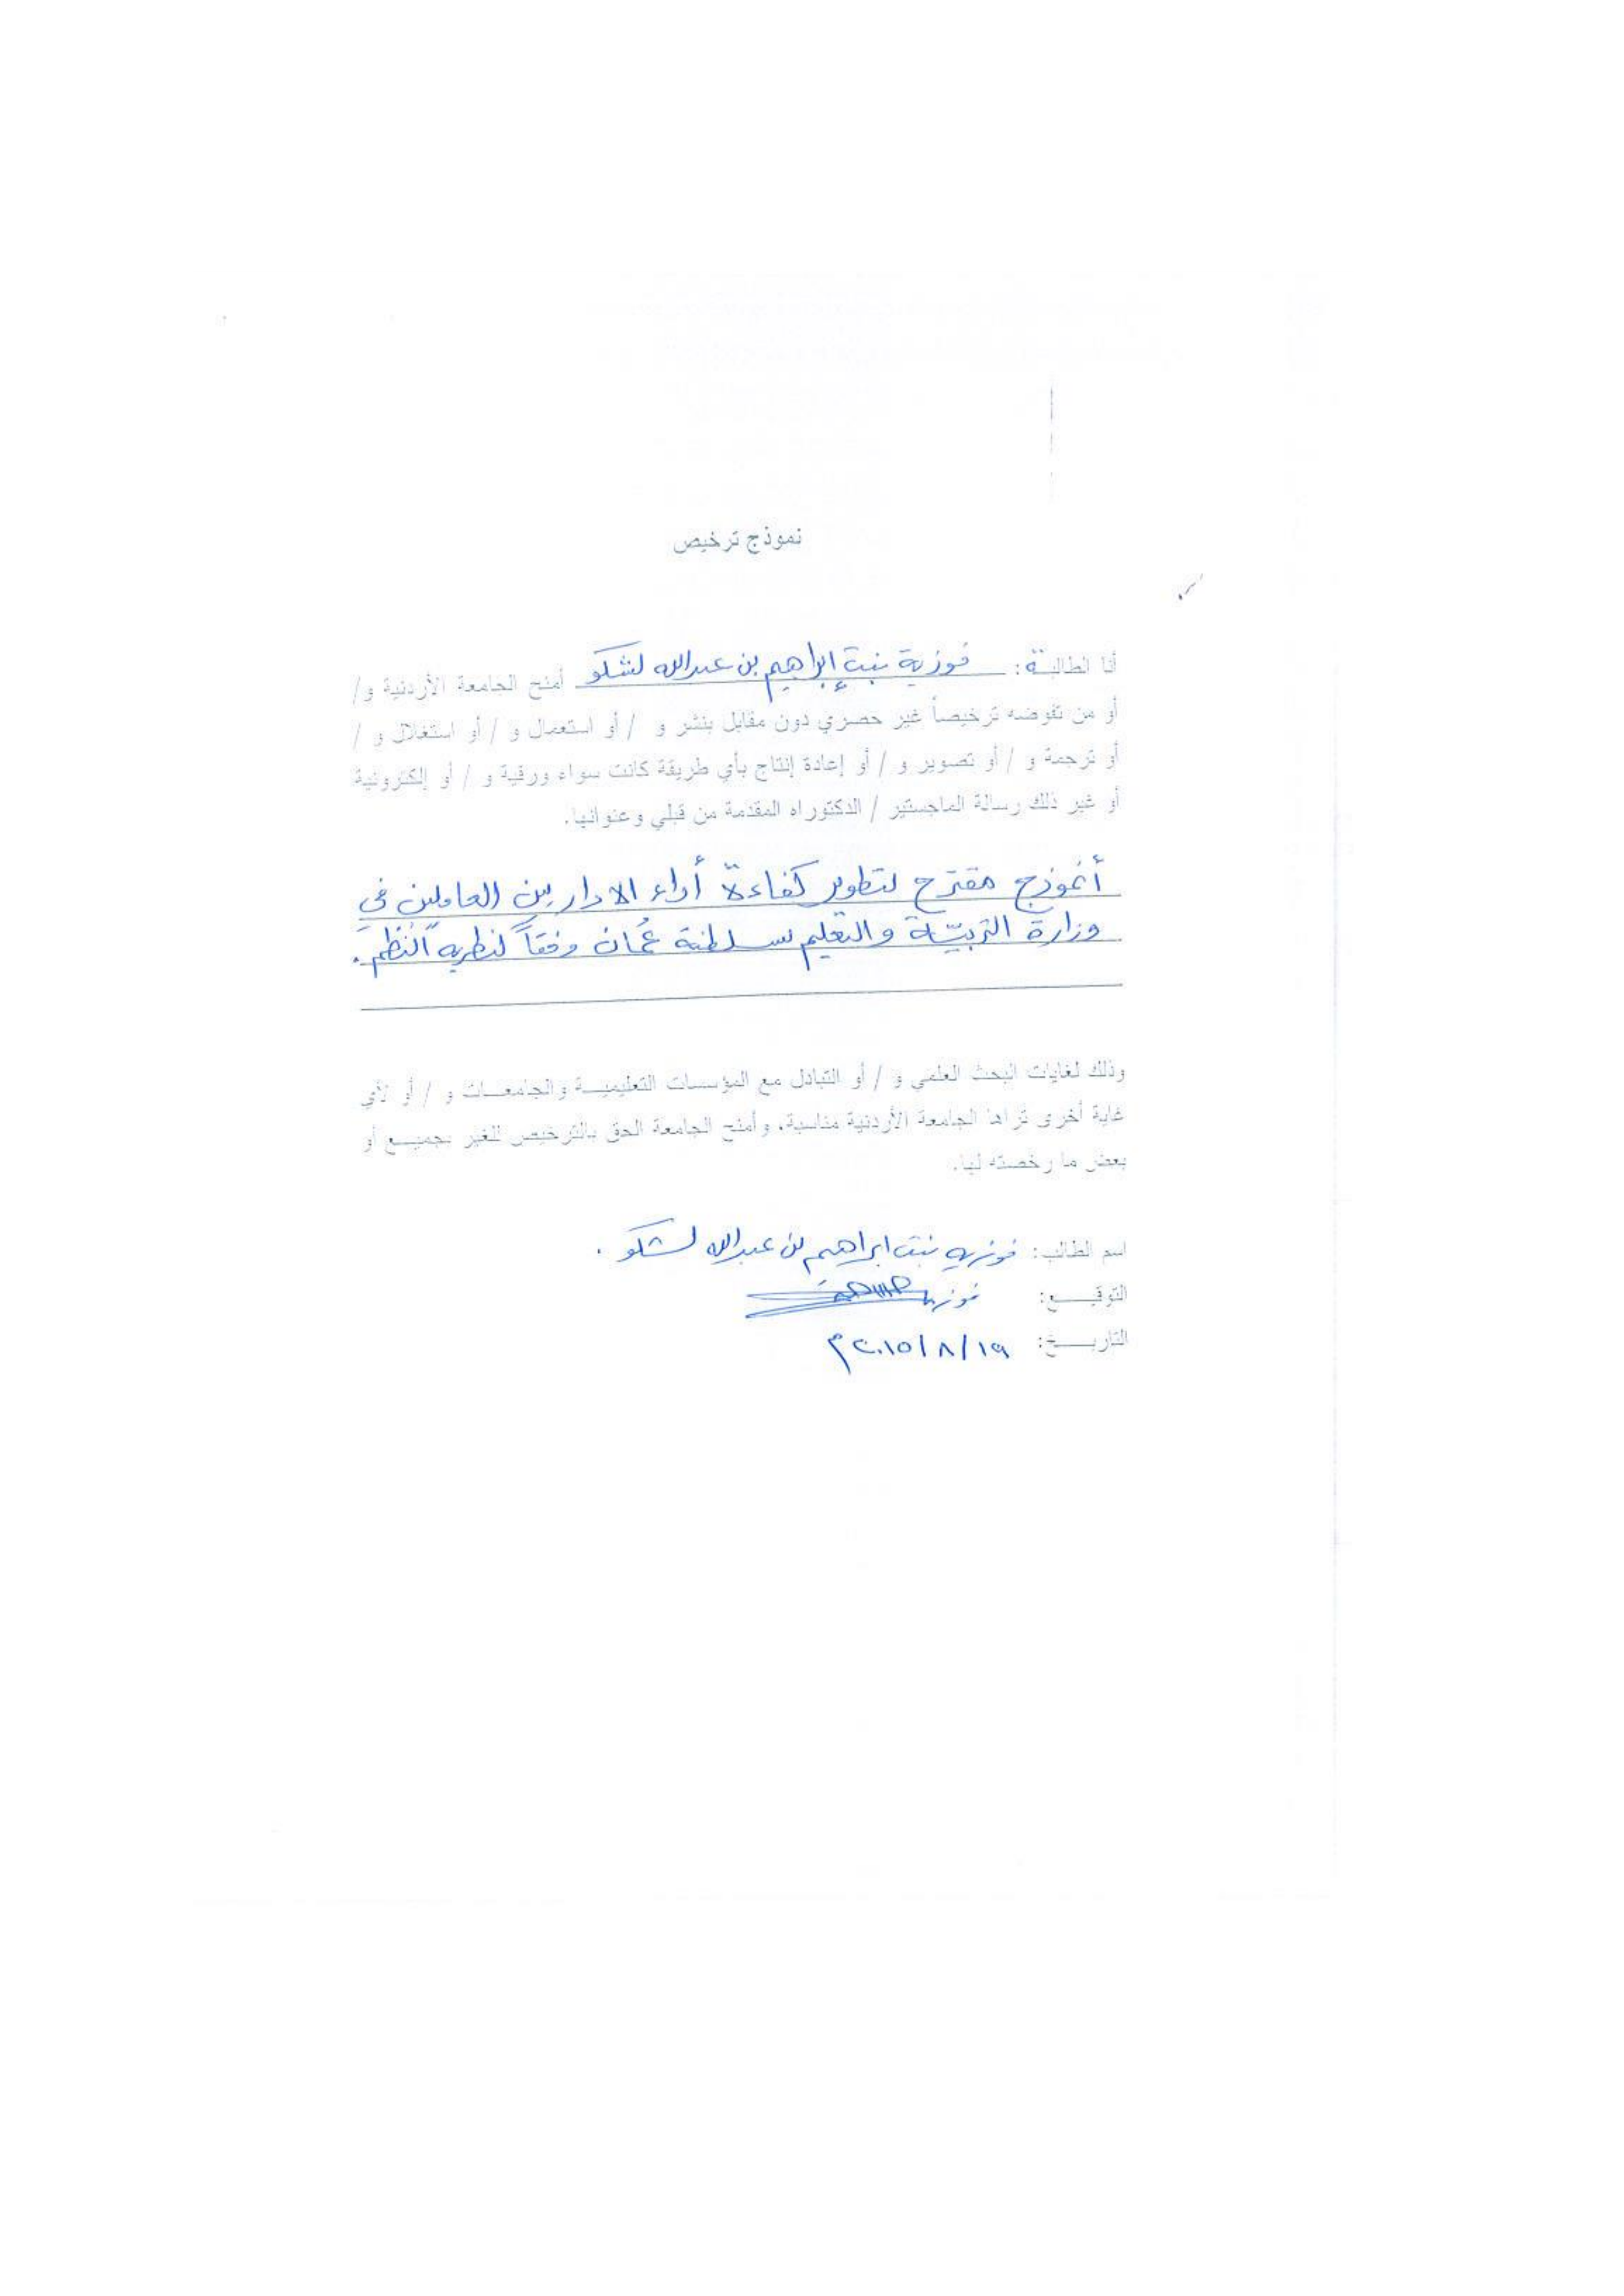 نموذج ترخيص
أنا الطالبة: فوزية بنت إبراهيم بن عبدالله لشكو أمنح الجامعة الأردنية و/
أو من تفوضه ترخيصاً غير حصري دون مقابل بنشر و / أو استعمال و / أو استغلال و /
أو ترجمة و / أو تصوير و / أو إعادة إنتاج بأي طريقة كانت سواء ورقية و / أو إلكترونية
أو غير ذلك رسالة الماجستير / الدكتوراه المقدمة من قبلي وعنوانها.
أنموذج مقترح لتطوير كفاءة أداء الاداريين العاملين في
وزارة التربية والتعليم بسلطنة عُمان وفقاً لنظرية النُظم.
وذلك لغايات البحث العلمي و / أو التبادل مع المؤسسات التعليمية والجامعات و / أو لأي
غاية أخرى تراها الجامعة الأردنية مناسبة، وأمنح الجامعة الحق بالترخيص للغير بجميع أو
بعض ما رخصته لها.
اسم الطالب: فوزيه بنت ابراهيم بن عبدالله لشكو.
التوقيع: فوزية
التاريخ: ١٩/٨/٢٠١٥م